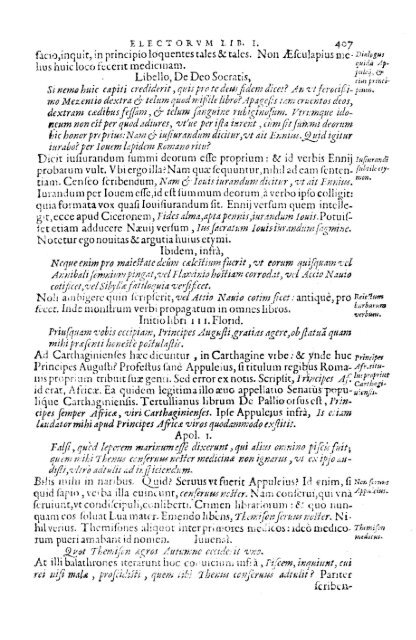 ELECTORVM LIB. I. 407
facio, inquit, in principio loquentes tales & tales. Non Æsculapius me-
lius huic loco fecerit medicinam.
Dialogus
Libello, De Deo Socratis,
Si nemo huic capiti crediderit, quis pro te deus fidem dicet? An vt ferocissi-
mo Mezentio dextra & telum quod missile libro? Apage sis tam cruentos deos,
dextram cædibus fessam, & telum sanguine rubiginosum. Vtrumque ido-
neum non est per quod adiures, vt ut per ista iurent, cum sit summi deorum
hic honor proprius: Nam & iusiurandum dicitur, vt ait Ennius. Quid igitur
iurabo? per Iouem lapidem Romano ritu?
Dicit iusiurandum summi deorum esse proprium: & id verbis Ennij
probarum vult. Vbi ergo illa? Nam quæ sequuntur, nihil ad eam senten-
tiam. Censeo scribendum, Nam & Iouis iurandum dicitur, vt ait Ennius.
Iurandum per Iouem esse, id est summum deorum, è verbo ipso colligit:
quia formata vox quasi Iouisiurandum sit. Enni versum quem intelle-
git, ecce apud Ciceronem, Fides alma, apta pennis, iurandum Iouis. Potuis-
set etiam adducere Næuij versum, Ius sacratum Iouis iurandum sagmine.
Notetur ergo nouitas & argutia huius etymi.
Iusiurandi
Ibidem, infrà,
Neque enim pro maiestate deûm cælestium fuerit, vt eorum quisquam vel
Annibali somnium pingat, vel Flaminio hostiam corrodat, vel Accio Nauio
cotificet, vel Sibyllæ fatiloquia versificet.
Noli ambigere quin scripserit, vel Actio Nauio cotim sicet: antiquè, pro
secet. Inde monstrum verbi propagatum in omnes libros.
Reiectum
barbarum
verbum.
Initio libri III. Florid.
Priusquam vobis occipiam, Principes Augusti, gratias agere, ob statuâ quam
mihi præsenti honestè postulastis.
Ad Carthaginienses hæc dicuntur, in Carthagine vrbe: & vnde hue
Principes Augusti? Profectus sanè Appuleius, si titulum regibus Roma-
nis proprium tribuit suæ genti. Sed error ex notis. Scripsit, Principes Af.
id erat, Africæ. Ea quidem legitima illo æuo appellatio Senatus popu-
lique Carthaginiensis. Tertullianus librum De Pallio orsus est, Prin-
cipes semper Africæ, viri Carthaginienses. Ipse Appuleius infrà, Is etiam
laudator mihi apud Principes Africæ viros quodammodo exstitit.
Principes
Apol. I.
Falsi, quòd leporem marinum esse dixerunt, qui alius omnino piscis fuit;
quem mihi Themis conseruus noster medicinæ non ignarus, vt ex ipso au-
distis, vltrò adtulit ad inspiciendum.
Bilis mihi in naribus. Quid? Seruus vt fuerit Appuleius? Id enim, si
quid sapio, verba illa euincunt, conseruus noster. Nam conserui, qui vnà
seruiunt, vt condiscipuli, conliberti. Crimen librariorum: & quo nun-
quam eos soluat Lua mater. Emendo libens, Themison seruus noster. Ni-
hil verius. Themisones aliquot inter primores medicos: ideò medico-
rum pueri amabant id nomen. Iuuenal.
Non seruus
Appuleius.
Themison
medicus.
Quot Themison ægros Autumno occiderit vno.
At illi balathrones iterarunt hoc conuicium infrà, Piscem, inquiunt, cui
rei nisi malæ, proscidisti, quem tibi Themis conseruus adtulit? Pariter
scriben-